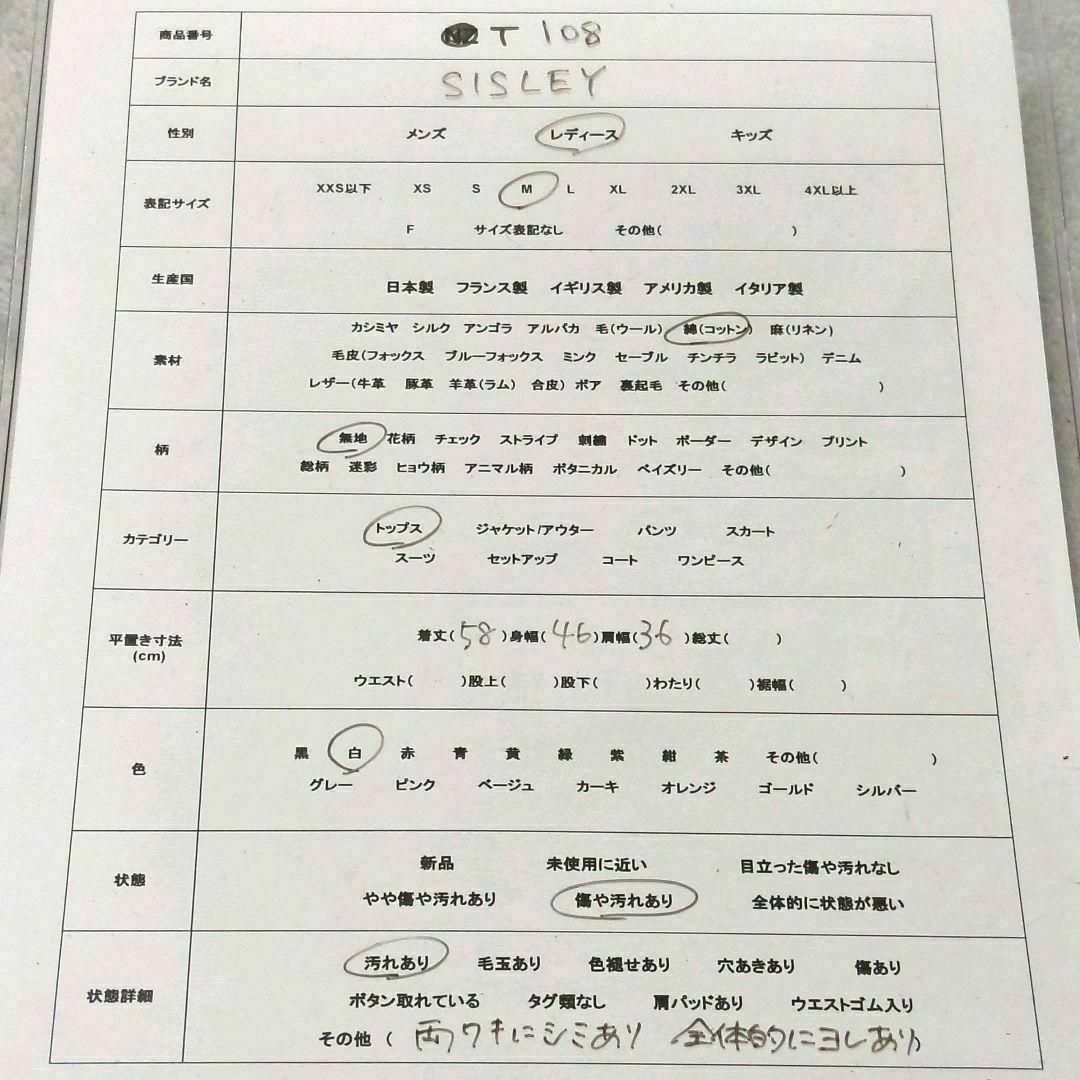 商品番号 T 108
ブランド名 SISLEY
性別 メンズ レディース キッズ
XXS以下 XS S M L XL 2XL 3XL 4XL以上
表記サイズ
F サイズ表記なし その他( )
生産国 日本製 フランス製 イギリス製 アメリカ製 イタリア製
カシミヤ シルク アンゴラ アルパカ 毛(ウール) 綿(コットン) 麻(リネン)
素材 毛皮(フォックス ブルーフォックス ミンク セーブル チンチラ ラビット) デニム
レザー(牛革 豚革 羊革(ラム) 合皮) ボア 裏起毛 その他( )
柄 無地 花柄 チェック ストライプ 刺繍 ドット ボーダー デザイン プリント
総柄 迷彩 ヒョウ柄 アニマル柄 ボタニカル ペイズリー その他( )
カテゴリー トップス ジャケット/アウター パンツ スカート
スーツ セットアップ コート ワンピース
平置き寸法 着丈(58)身幅(46)肩幅(36)総丈( )
(cm)
ウエスト( )股上( )股下( )わたり( )裾幅( )
色 黒 白 赤 青 黄 緑 紫 紺 茶 その他( )
グレー ピンク ベージュ カーキ オレンジ ゴールド シルバー
状態 新品 未使用に近い 目立った傷や汚れなし
やや傷や汚れあり 傷や汚れあり 全体的に状態が悪い
汚れあり 毛玉あり 色褪せあり 穴あきあり 傷あり
状態詳細 ボタン取れている タグ類なし 肩パッドあり ウエストゴム入り
その他 ( 両ワキにシミあり 全体的にヨレあり)